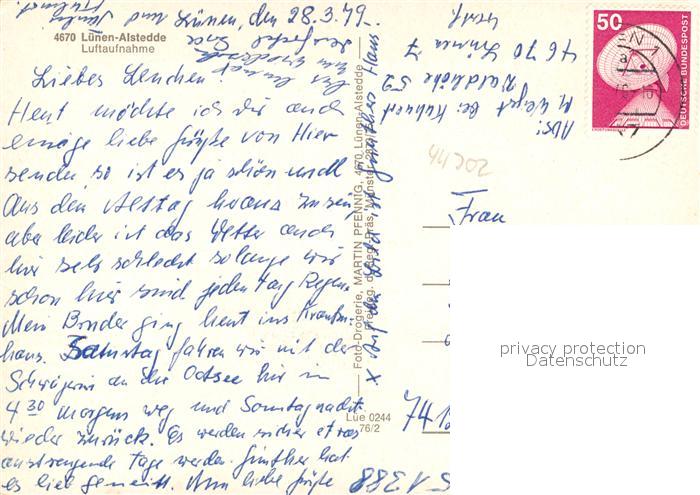 4670 Lünen-Alstedde
Luftaufnahme
und Lünen, den 28.3.79.
Liebes Lenchen
Heut möchte ich dir auch
einige liebe Grüße von Hier
senden, so ist es ja schön mall
Aus dem Alltag heraus zu sein
aber leider ist das Wetter auch
hir sehr schlecht solange wir
schon hir sind jeden tag Regen.
Mein Bruder ging heut ins Kranken-
haus. Samstag fahren wir mit der
Schwägerin an die Ostsee hir um
4 30 morgens weg und Sonntagnacht
wieder zurück. Es werden sicher etwas
anstrengende tage werden. Günther hat
es lieb gemeint. Nun liebe Grüße
Foto-Drogerie, MARTIN PFENNIG, 4670 Lünen-Alstedde
x Auf der Bild ist Günthers Haus
Lüe 0244
76/2
Abs:
bei
Waldhöhe 52
4670 Lünen 7
Westf.
50
DEUTSCHE BUNDESPOST
Frau
privacy protection
Datenschutz
741
S 1388